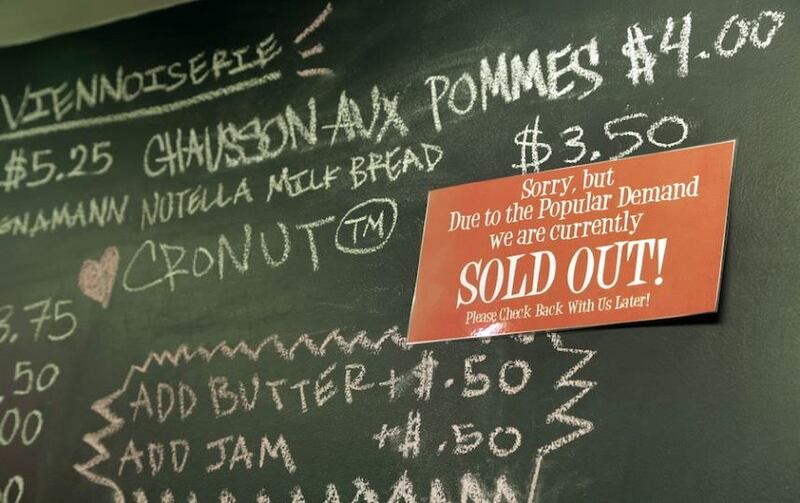 VIENNOISERIE
$5.25 CHAUSSON AUX POMMES $4.00
NUTELLA MILK BREAD $3.50
CRONUT TM
Sorry, but
Due to the Popular Demand
we are currently
SOLD OUT!
Please Check Back With Us Later!
3.75
.50
00
0
ADD BUTTER +$.50
ADD JAM +$.50